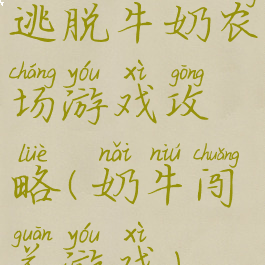 逃脱牛奶农
cháng yóu xì gōng
场游戏攻
lüè nǎi niú chuǎng
略(奶牛闯
guān yóu xì
关游戏)